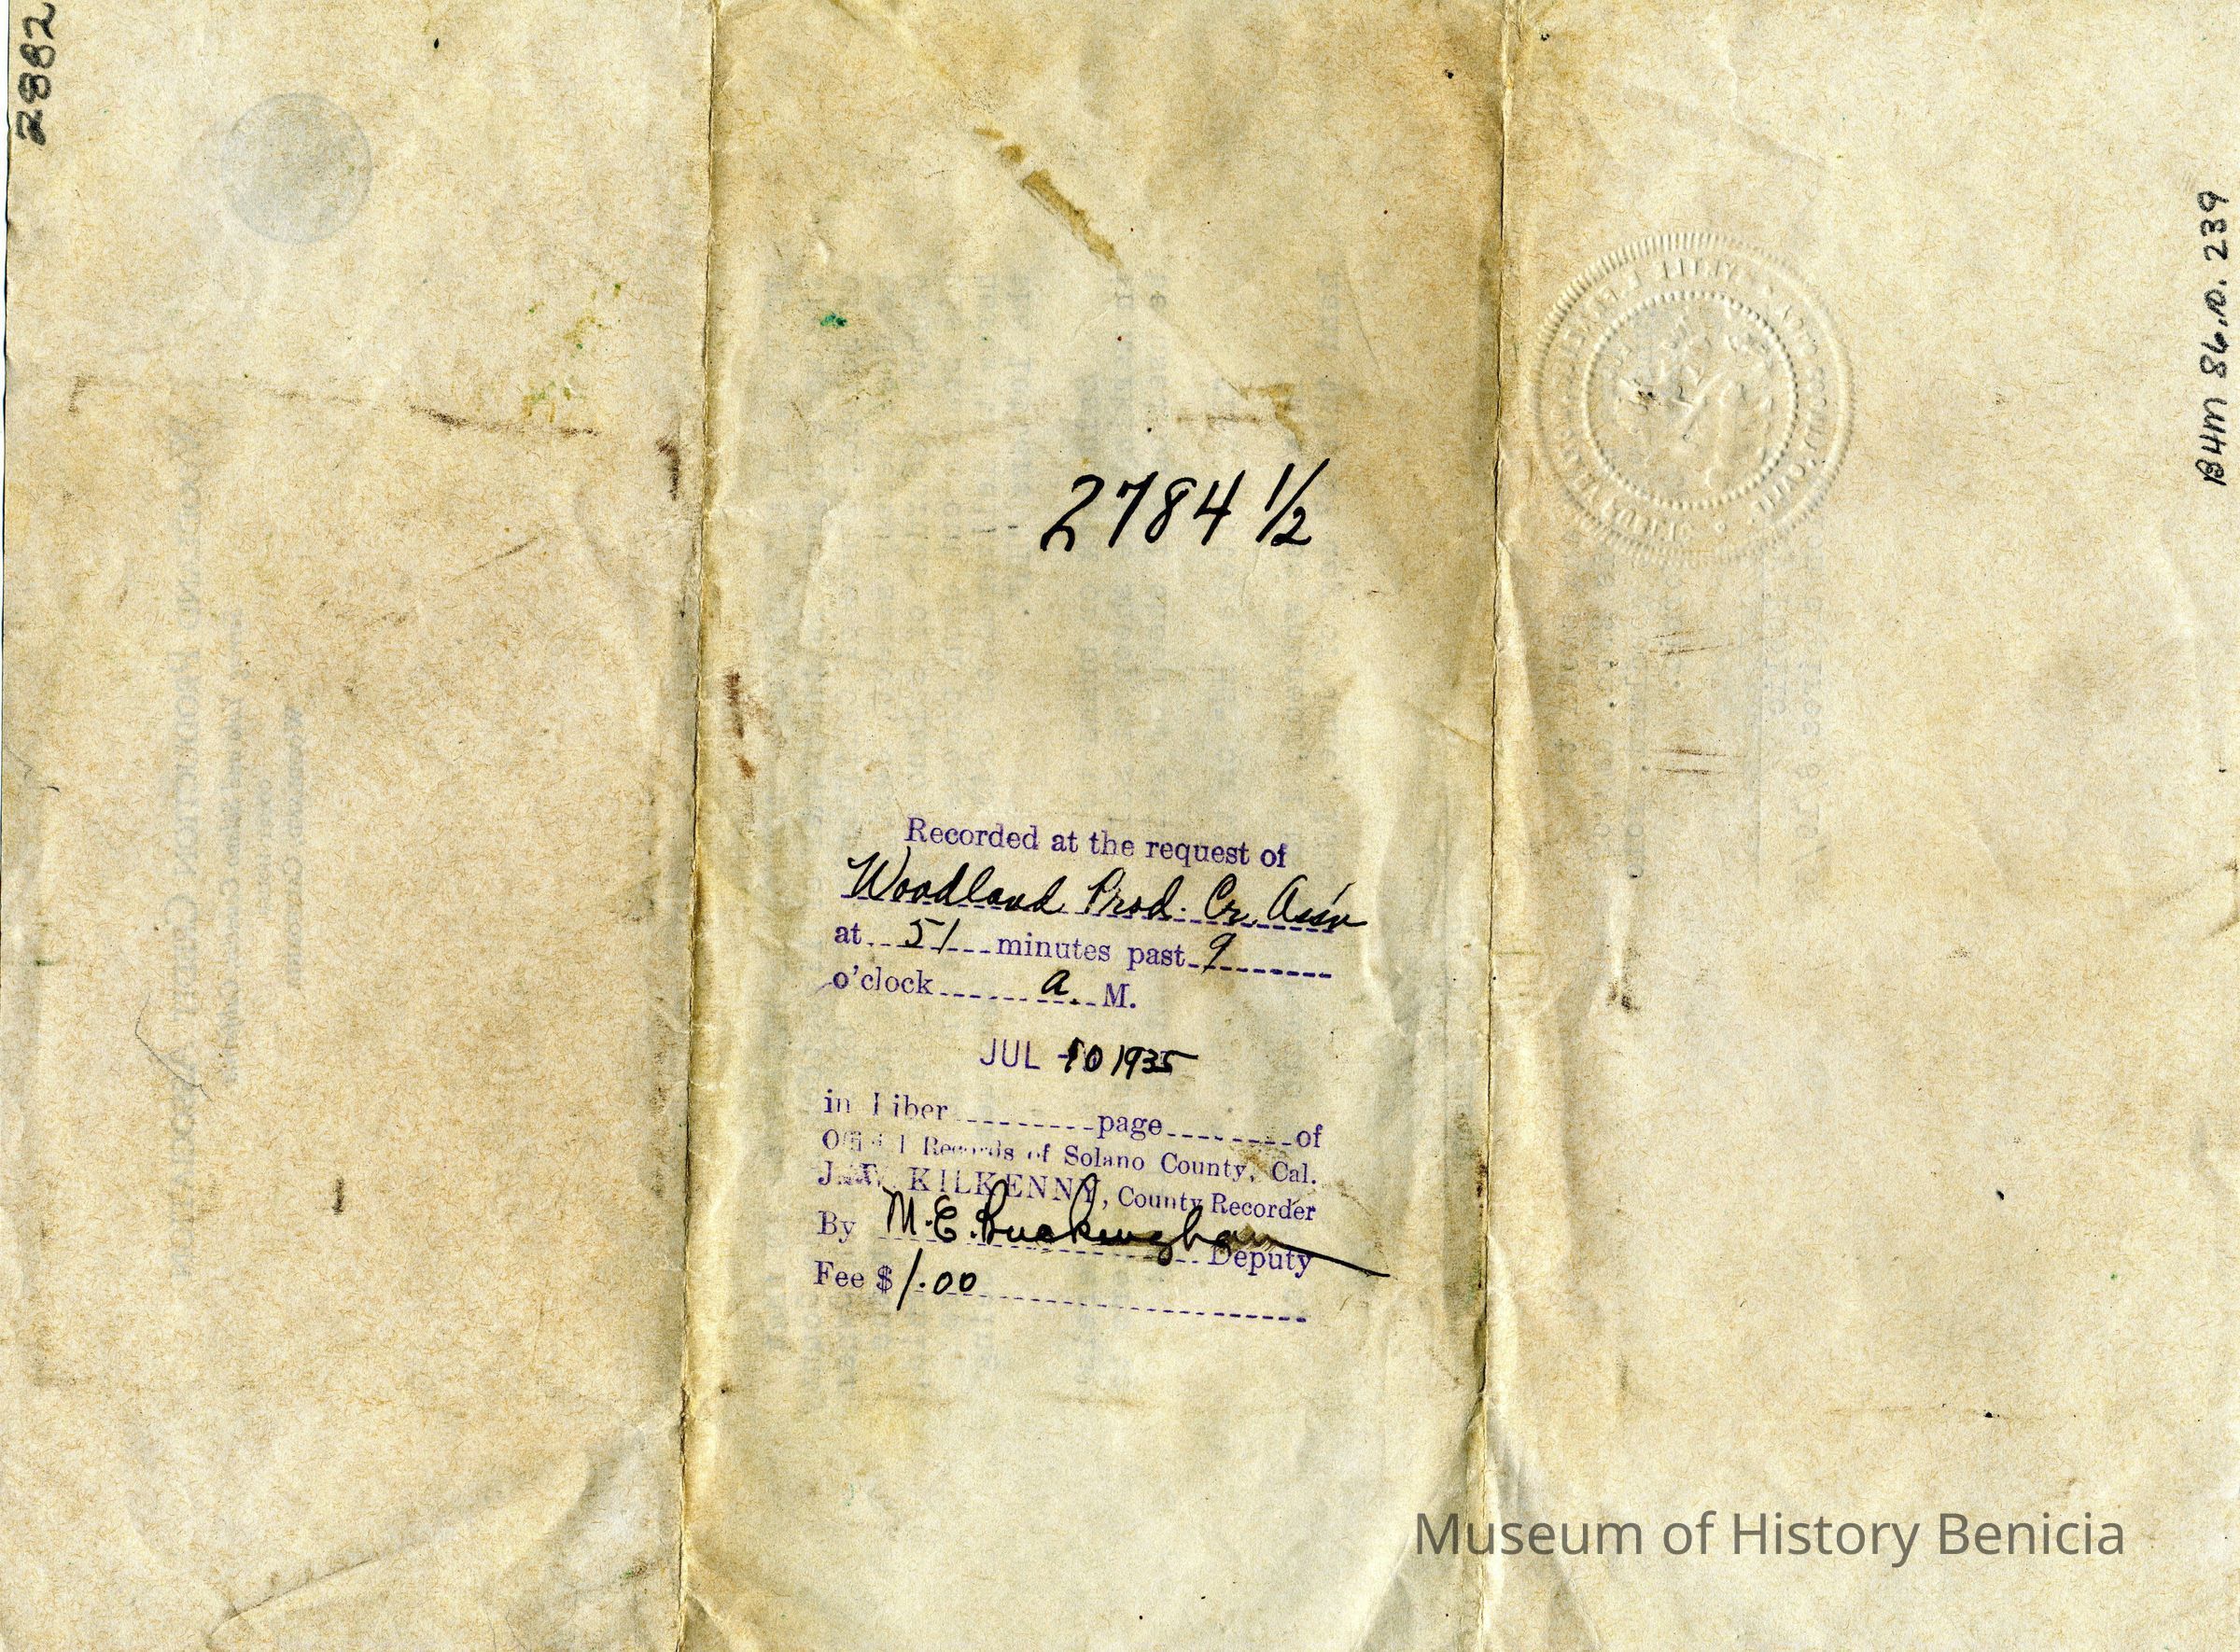 2882
2784 ½
Recorded at the request of
Woodland Prod. Cr. Ass'n
at 51 minutes past 9
o'clock a. M.
JUL 10 1935
in Liber page of
Official Records of Solano County, Cal.
KILKENNY, County Recorder
By M. E. Buckingham Deputy
Fee $ 1.00
B4M 86.10.239
Museum of History Benicia